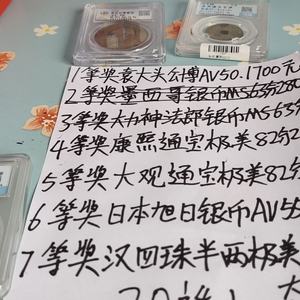 1等奖袁大头公博AV50.1700元
2等奖墨西哥银币MS63分280
3等奖大力神法郎银币MS63
4等奖康熙通宝极美82分
5等奖大观通宝极美82分
6等奖日本旭日银币AV55
7等奖汉四珠半两极美